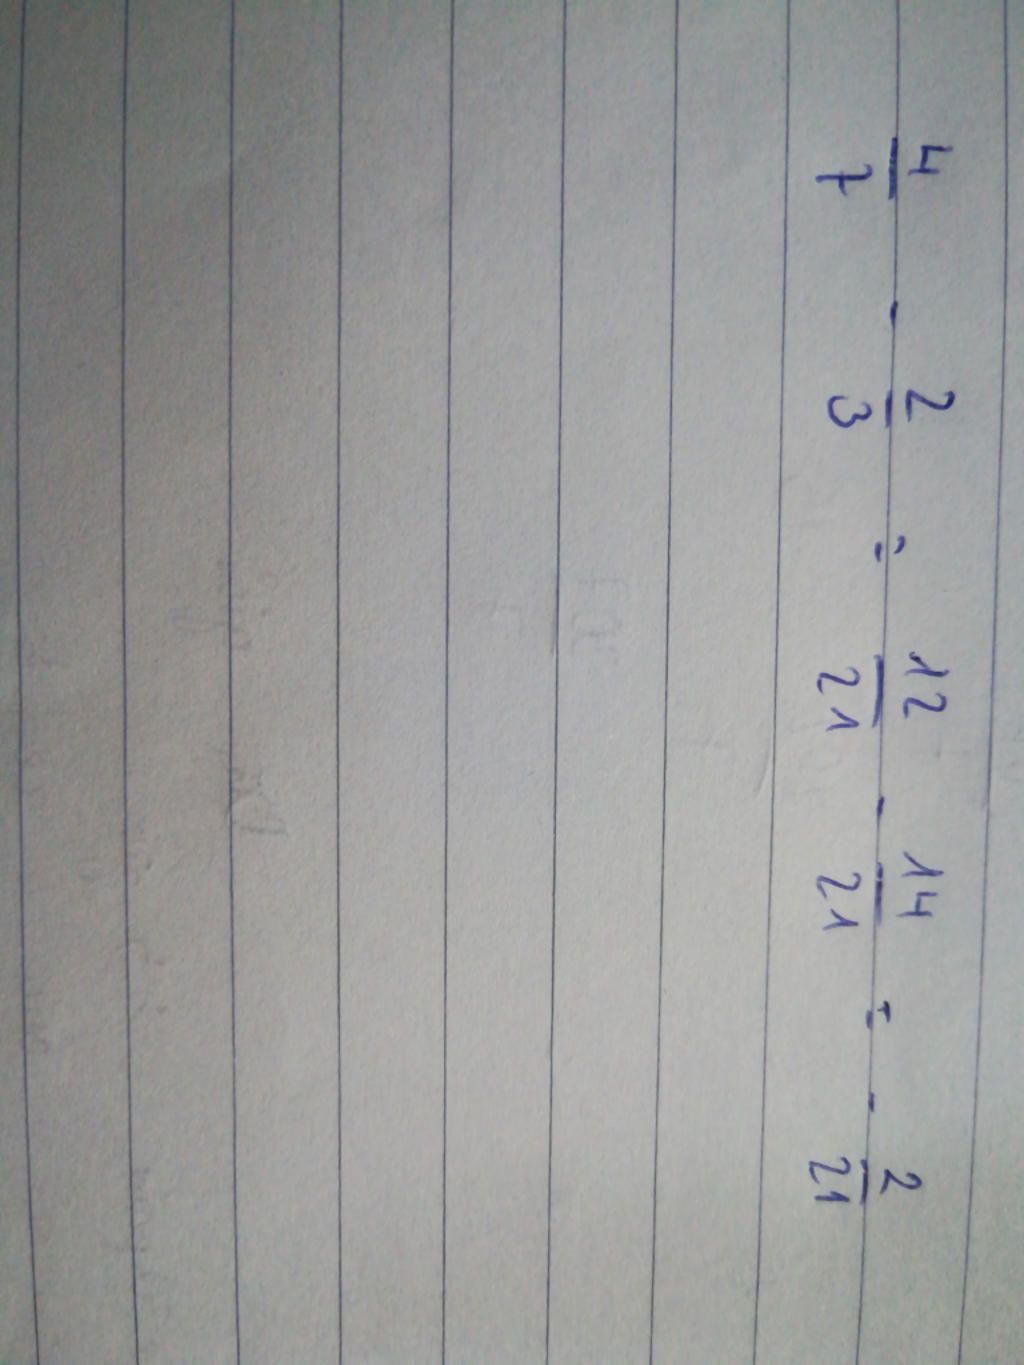 4/7 - 2/3 = 12/21 - 14/21 = - 2/21